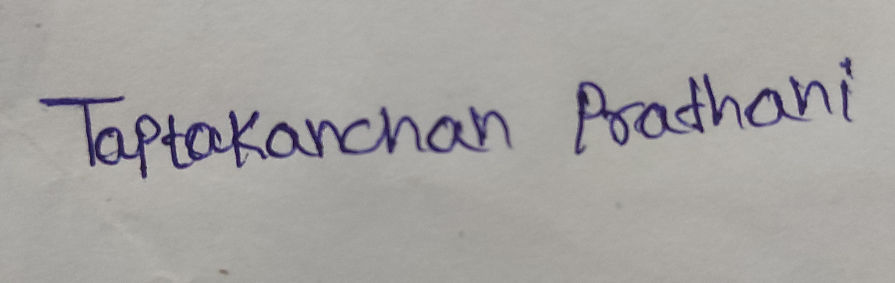 Taptakanchan Prathani